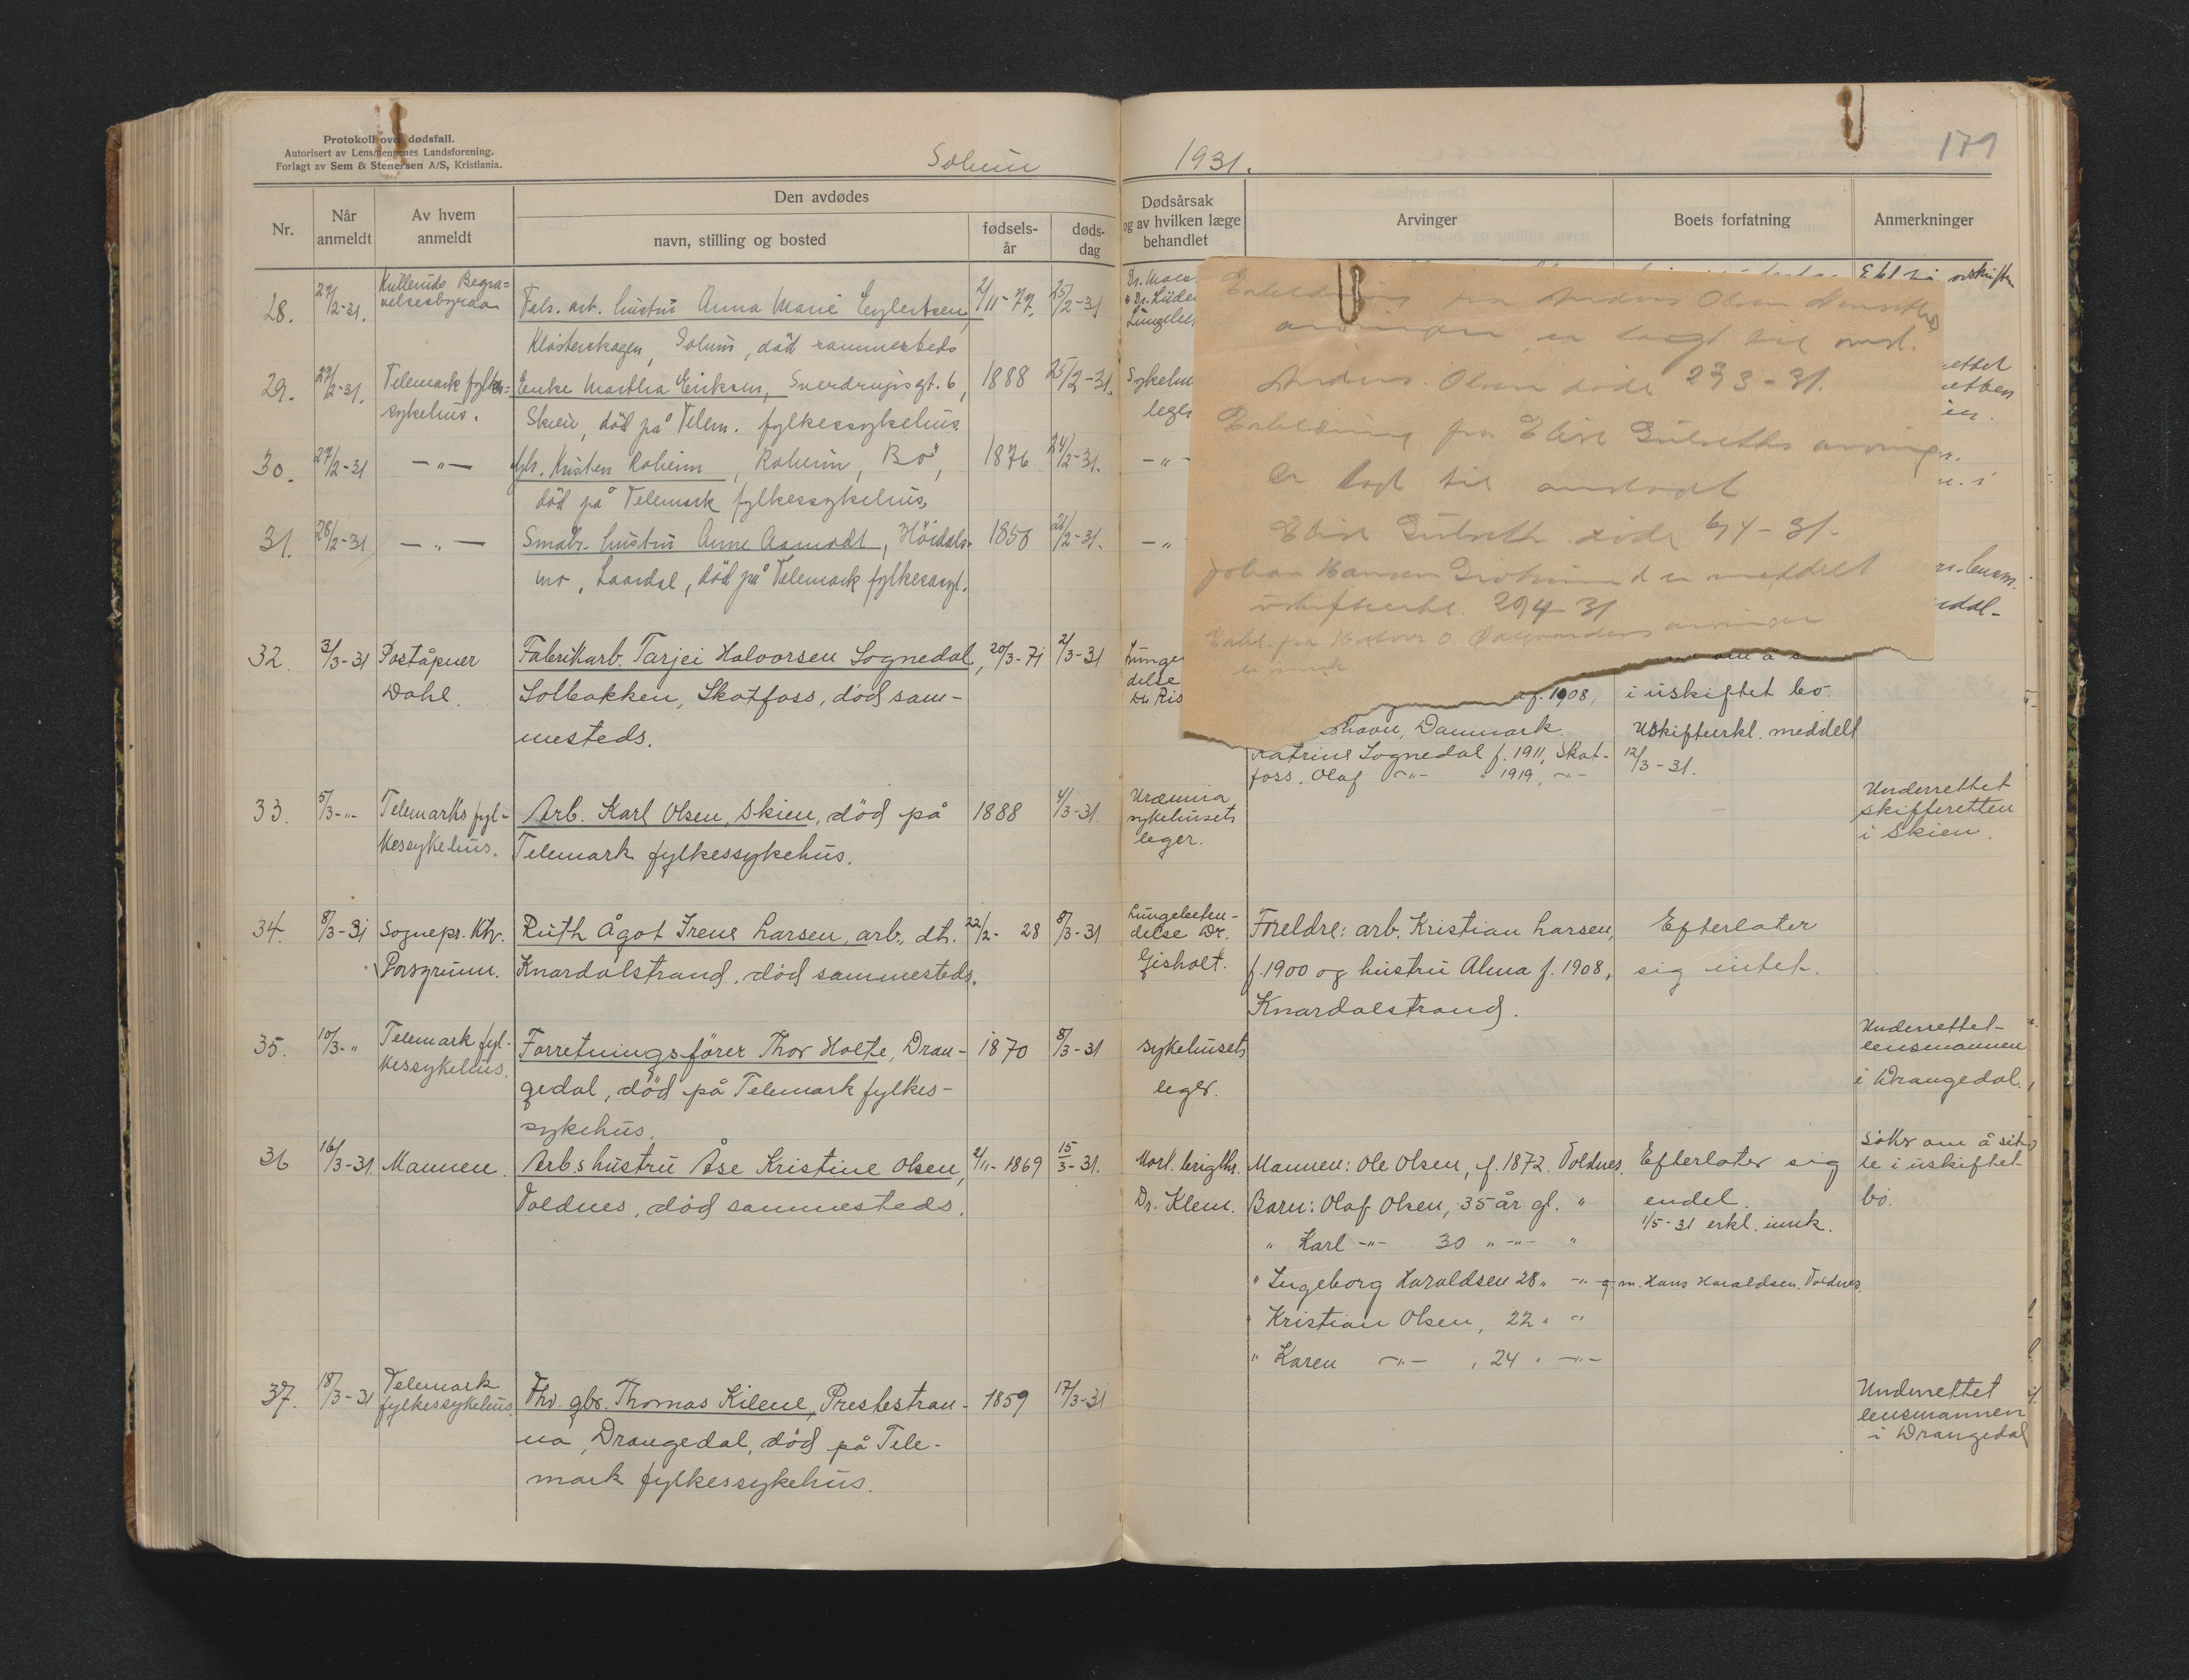 Protokoll over dødsfall.
Autorisert av Lensmennenes Landsforening.
Forlagt av Sem & Stenersen A/S, Kristiania.
Solum 1931. 179
Nr.
Når anmeldt
Av hvem anmeldt
Den avdødes
navn, stilling og bosted
fødsels-år
døds-dag
Dødsårsak og av hvilken læge behandlet
Arvinger
Boets forfatning
Anmerkninger
28. 27/2-31. Begra-
velsesbyraa Fabr. arb. hustru Anna Marie 2/11-77. 25/2-31
Klosterskogen, Solum, død sammesteds
29. 27/2-31. Telemark fylkes- Enke Martha Eriksen, Sverdrupsgt. 6, 1888 25/2-31.
sykehus. Skien, død på Telem. fylkessykehus.
30. 27/2-31 -"- Roheim, Bø, 1876 24/2-31. -"-
død på Telemark fylkessykehus.
31. 28/2-31 -"- Smabr. hustru Anne Aamodt, Høidals- 1850 -"-
mo, Laardal, død på Telemark fylkessyk.
Anders Olsen
er lagt til
Anders Olsen døde 23/3-31.
fra Elise Gulseths arvinger
er lagt til
Elise Gulseth døde 6/4-31.
Johan Hansen er meddelt
uskifteerkl. 29/4-31
32. 3/3-31 Poståpner Fabrikarb. Tarjei Halvorsen Sognedal, 20/3-71 2/3-31
Dahl. Solbakken, Skotfoss, død sam- f. 1908, i uskiftet bo.
mesteds. havn, Danmark. Uskifteerkl. meddelt
Katrine Sognedal f. 1911, Skot- 12/3-31.
foss. Olaf -"- " 1919, -"-
33. 5/3-"- Telemarks fyl- Arb. Karl Olsen, Skien, død på 1888 4/3-31. Uræmia Underrettet
kessykehus. Telemark fylkessykehus. sykehusets skifteretten
leger. i Skien.
34. 8/3-31 Sognepr. Ktr. Ruth Ågot Irene Larsen, arb. dtr. 22/2-28 8/3-31 Foreldre: arb. Kristian Larsen, Efterlater
Porsgrunn. Knardalstrand, død sammesteds. Dr. Gisholt. f. 1900 og hustru Alma f. 1908, sig intet.
Knardalstrand.
35. 10/3-" Telemark fyl- Forretningsfører Thor Holte, Dran- 1870 8/3-31 sykehusets Underrettet
kessykehus. gedal, død på Telemark fylkes- leger. lensmannen
sykehus. i Drangedal.
36 16/3-31. Mannen. Arb.s hustru Åse Kristine Olsen, 2/11-1869 15/3-31. Mannen: Ole Olsen, f. 1872. Voldnes. Efterlater sig Søker om å sit-
Voldnes, død sammesteds. Dr. Klem. Barn: Olaf Olsen, 35 år gl. " endel. te i uskiftet
1/5-31 erkl. innk. bo.
" Karl -"- 30 " -"- "
" Ingeborg Haraldsen 28 " -"- g. m. Hans Haraldsen. Voldnes.
" Kristian Olsen, 22 " "
" Karen -"- , 24 " -"-
37. 18/3-31 Telemark Fhv. gbr. Thomas Kilene, Prestestran- 1859 17/3-31 Underrettet
fylkessykehus. na, Drangedal, død på Tele- lensmannen
mark fylkessykehus. i Drangedal